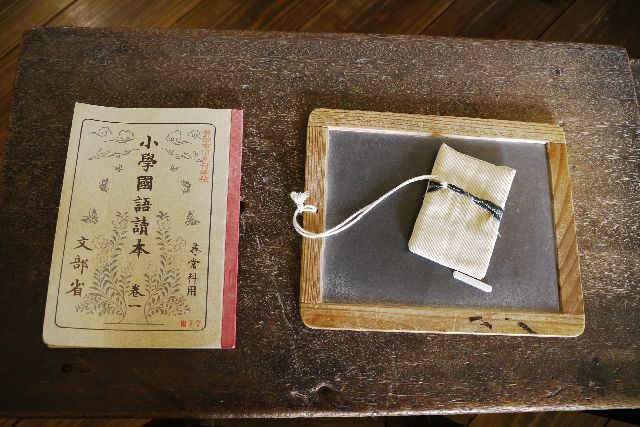 小學國語讀本
卷一
尋常科用
文部省